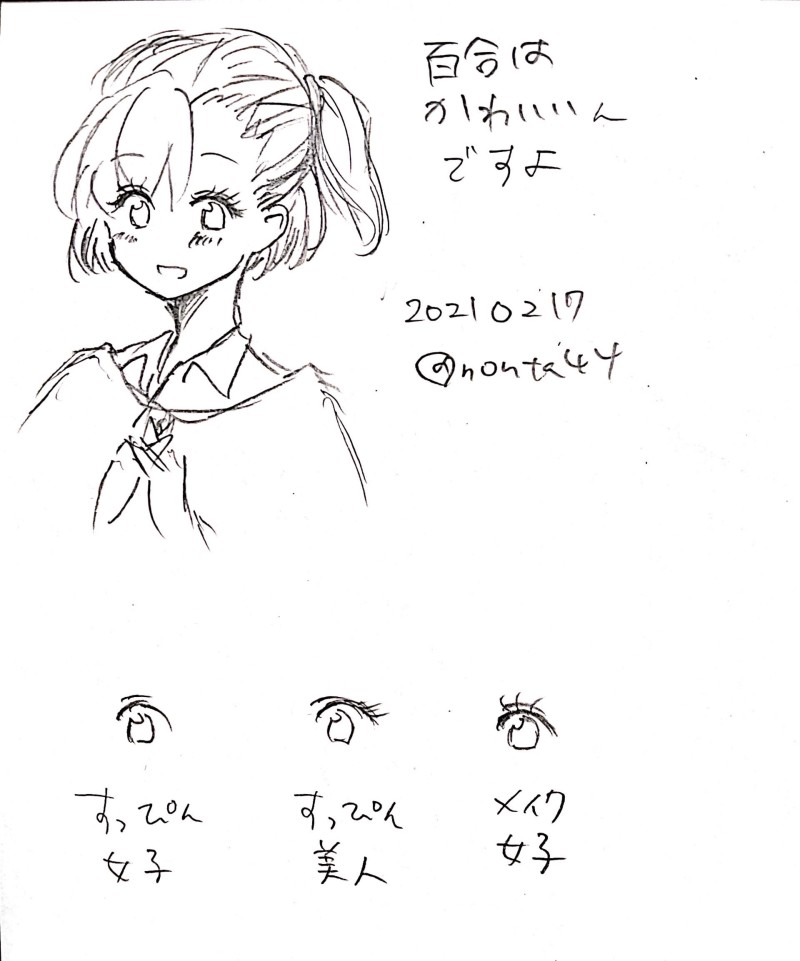 百合は
かわいいん
ですよ
20210217
@nonta44
すっぴん
女子
すっぴん
美人
メイク
女子